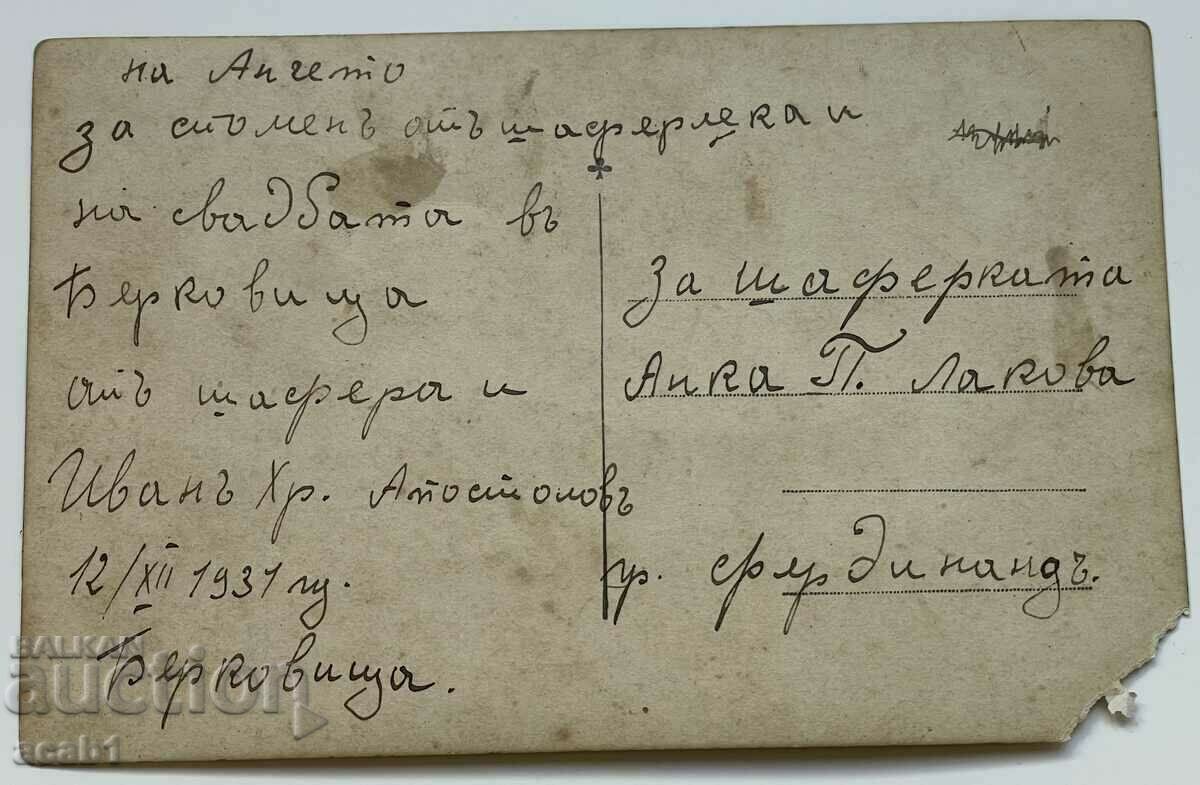 на Ангето
за споменъ отъ шаферлека и
на свадбата въ
Берковица
отъ шафера и
Иванъ Хр. Апостоловъ
12/XII 1931 г.
Берковица.
За шаферката
Анка П. Лакова
гр. Фердинандъ.
BALKAN
auction
acab1